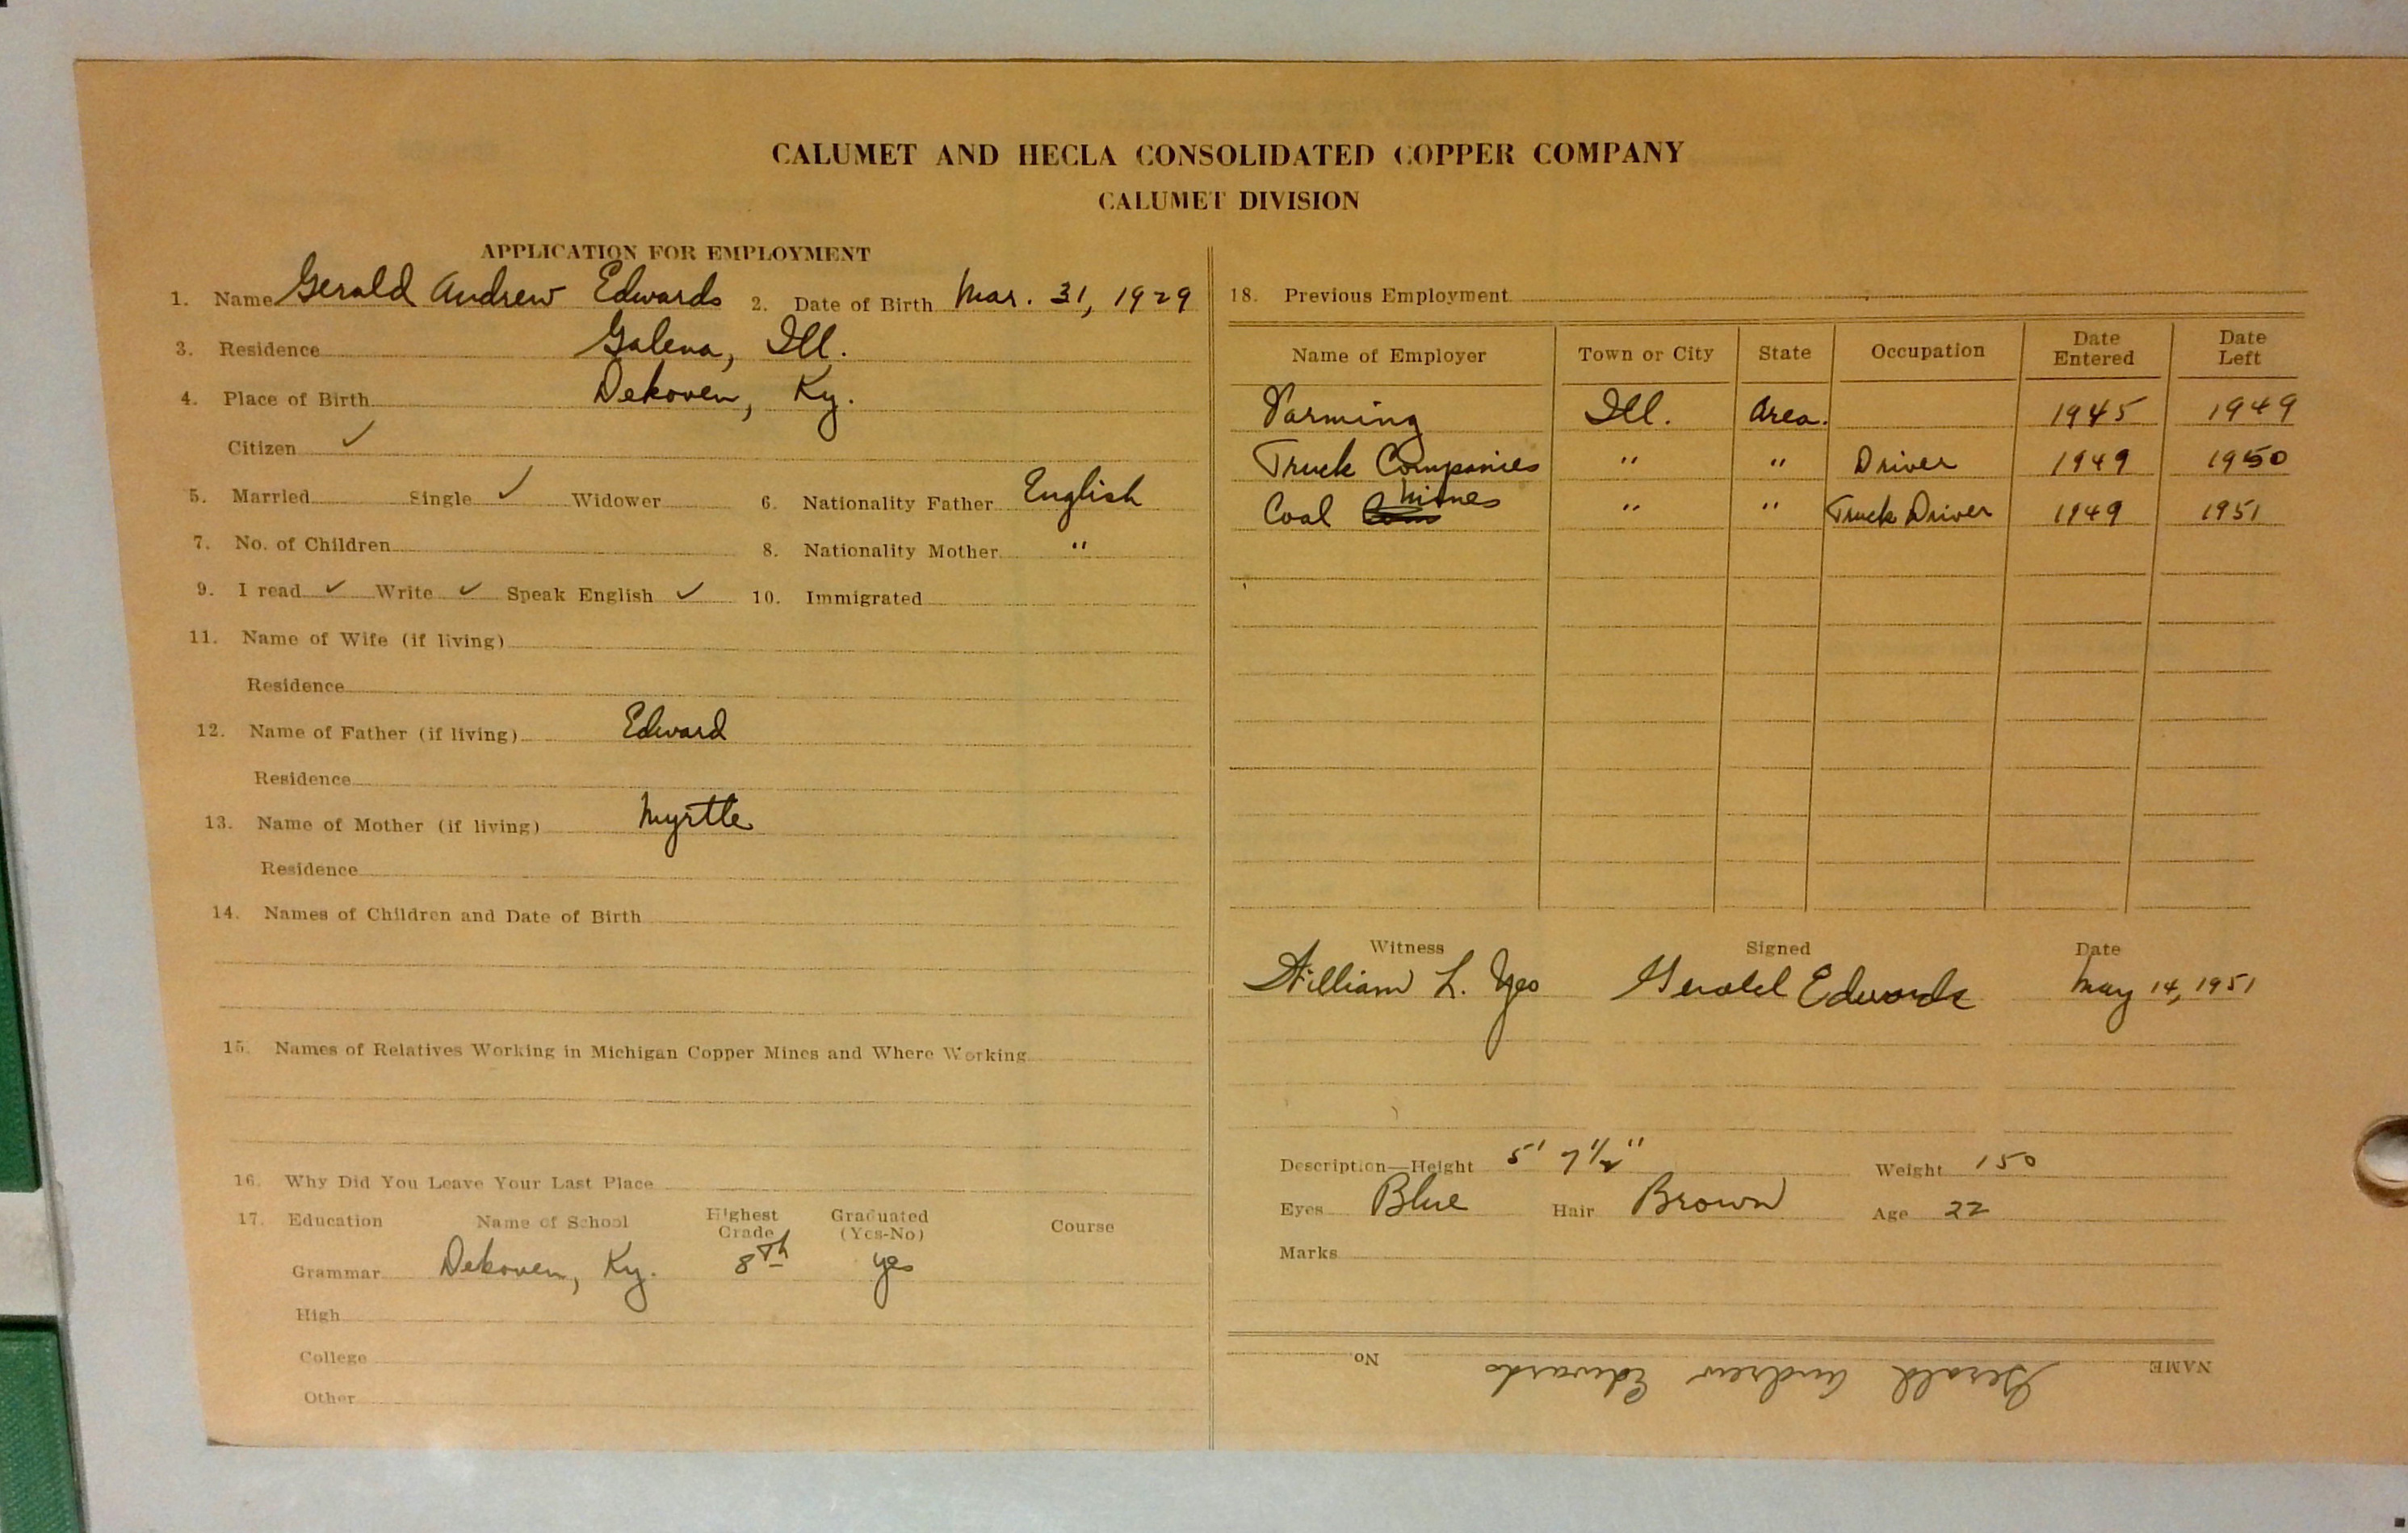 CALUMET AND HECLA CONSOLIDATED COPPER COMPANY
CALUMET DIVISION
APPLICATION FOR EMPLOYMENT
1. Name Gerald Andrew Edwards 2. Date of Birth Mar. 31, 1929
3. Residence Galena, Ill.
4. Place of Birth Dekoven, Ky.
Citizen ✓
5. Married Single ✓ Widower 6. Nationality Father English
7. No. of Children 8. Nationality Mother "
9. I read ✓ Write ✓ Speak English ✓ 10. Immigrated
11. Name of Wife (if living)
Residence
12. Name of Father (if living) Edward
Residence
13. Name of Mother (if living) Myrtle
Residence
14. Names of Children and Date of Birth
15. Names of Relatives Working in Michigan Copper Mines and Where Working
16. Why Did You Leave Your Last Place
17. Education Name of School Highest Grade Graduated (Yes-No) Course
Grammar Dekoven, Ky. 8th yes
High
College
Other
18. Previous Employment
Name of Employer Town or City State Occupation Date Entered Date Left
Farming Ill. Area. 1945 1949
Truck Companies " " Driver 1949 1950
Coal Mines " " Truck Driver 1949 1951
Witness Signed Date
William L. Yeo Gerald Edwards May 14, 1951
Description—Height 5' 7 1/2" Weight 150
Eyes Blue Hair Brown Age 22
Marks
NAME Gerald Andrew Edwards No.